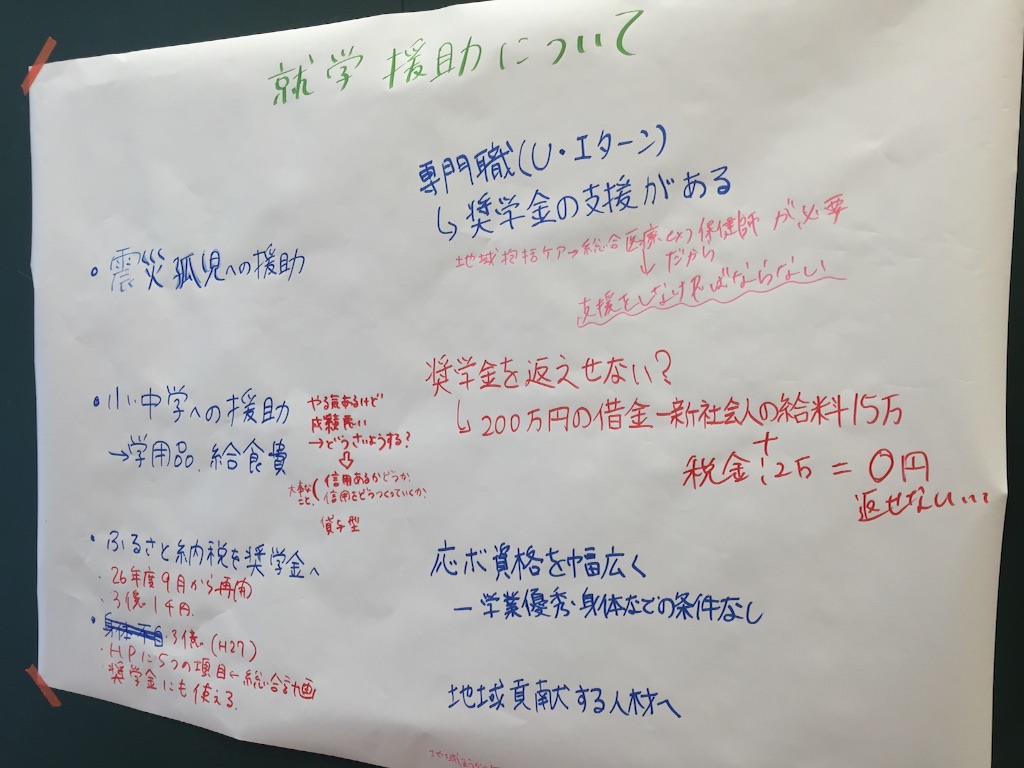 就学援助について
・震災孤児への援助
・小・中学への援助
→学用品、給食費
やる気あるけど
成績悪い
→どうさいようする?
⇩
大事なこと、
信用あるかどうか、
信用をどうつくっていくか?
貸与型
・ふるさと納税を奨学金へ
・26年度9月から再開
・3億1千円
・3億。(H27)
・HPに5つの項目←総合計画
・奨学金にも使える。
専門職(U・Iターン)
↳奨学金の支援がある
地域包括ケア→総合医療 保健師が必要
↓だから
支援をしなければならない
奨学金を返えせない?
↳200万円の借金ー新社会人の給料15万
+
税金 12万=0円
返せない…
応ボ資格を幅広く
ー学業優秀・身体などの条件なし
地域貢献する人材へ